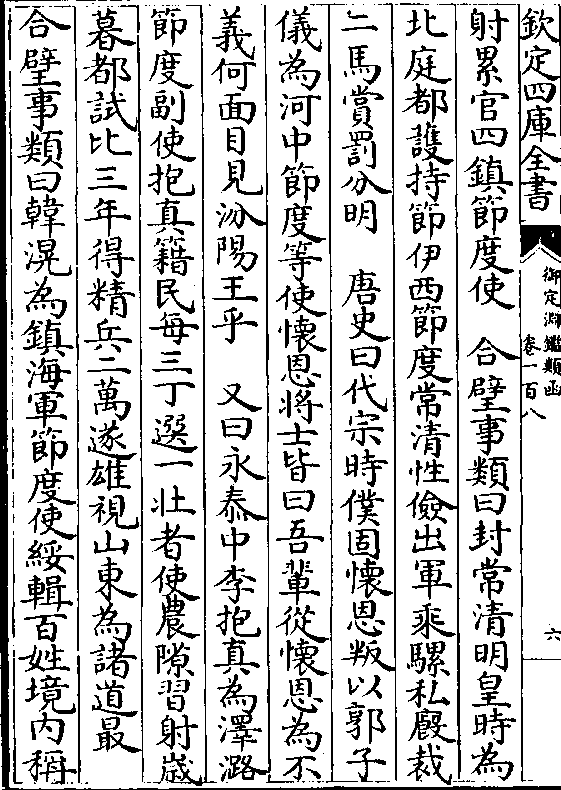 欽定四庫全書
御定淵鑑類函
卷一百八
六
射累官四鎮節度使　合璧事類曰封常清明皇時為
北庭都護持節伊西節度常清性儉出軍乘騾私廄裁
二馬賞罰分明　唐史曰代宗時僕固懷恩叛以郭子
儀為河中節度等使懷恩将士皆曰吾輩從懷恩為不
義何面目見汾陽王乎　又曰永泰中李抱真為澤潞
節度副使抱真籍民每三丁選一壯者使農隙習射歲
暮都試比三年得精兵二萬遂雄視山東為諸道最
合璧事類曰韓滉為鎮海軍節度使綏輯百姓境内稱